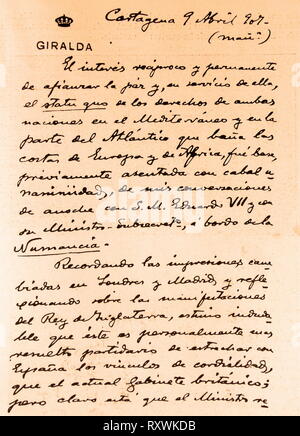 Cartagena 9 Abril 907-
(mañª)
GIRALDA
El interés recíproco y permanente
de afianzar la paz y, en servicio de ella,
el statu quo de los derechos de ambas
naciones en el Mediterráneo y en la
parte del Atlántico que baña las
costas de Europa y de África, fué base,
préviamente asentada con cabal u-
nanimidad, de mis conversaciones
de anoche con S. M. Eduardo VII y con
su Ministro á bordo de la
Numancia.
Recordando las impresiones cam-
biadas en Londres y Madrid, y refle-
xionando sobre las manifestaciones
del Rey de Inglaterra, estimo induda-
ble que éste es personalmente mas
resuelto partidario de estrechar con
España los vínculos de cordialidad,
que el actual Gabinete británico;
pero claro está que el Ministro re-
alamy
Image ID: RXWKDB
www.alamy.com